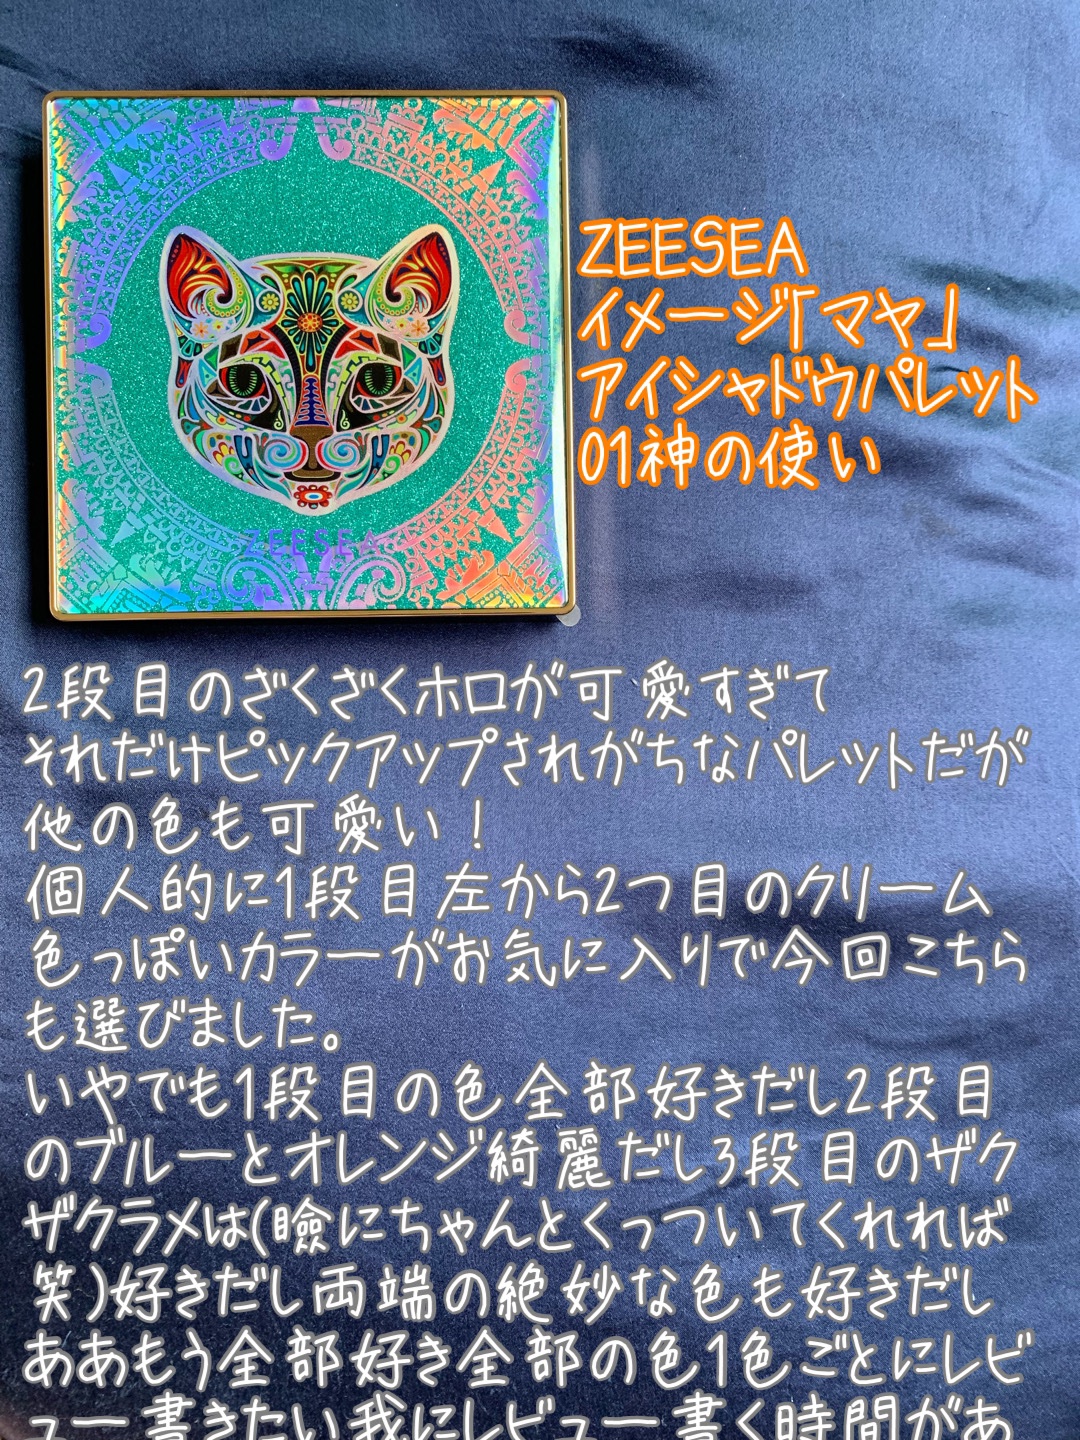 ZEESEA
ZEESEA
イメージ「マヤ」
アイシャドウパレット
01神の使い
2段目のざくざくホロが可愛すぎて
それだけピックアップされがちなパレットだが
他の色も可愛い！
個人的に1段目左から2つ目のクリーム
色っぽいカラーがお気に入りで今回こちら
も選びました。
いやでも1段目の色全部好きだし2段目
のブルーとオレンジ綺麗だし3段目のザク
ザクラメは(瞼にちゃんとくっついてくれれば
笑)好きだし両端の絶妙な色も好きだし
ああもう全部好き全部の色1色ごとにレビ
ュー書きたい我にレビュー書く時間があ